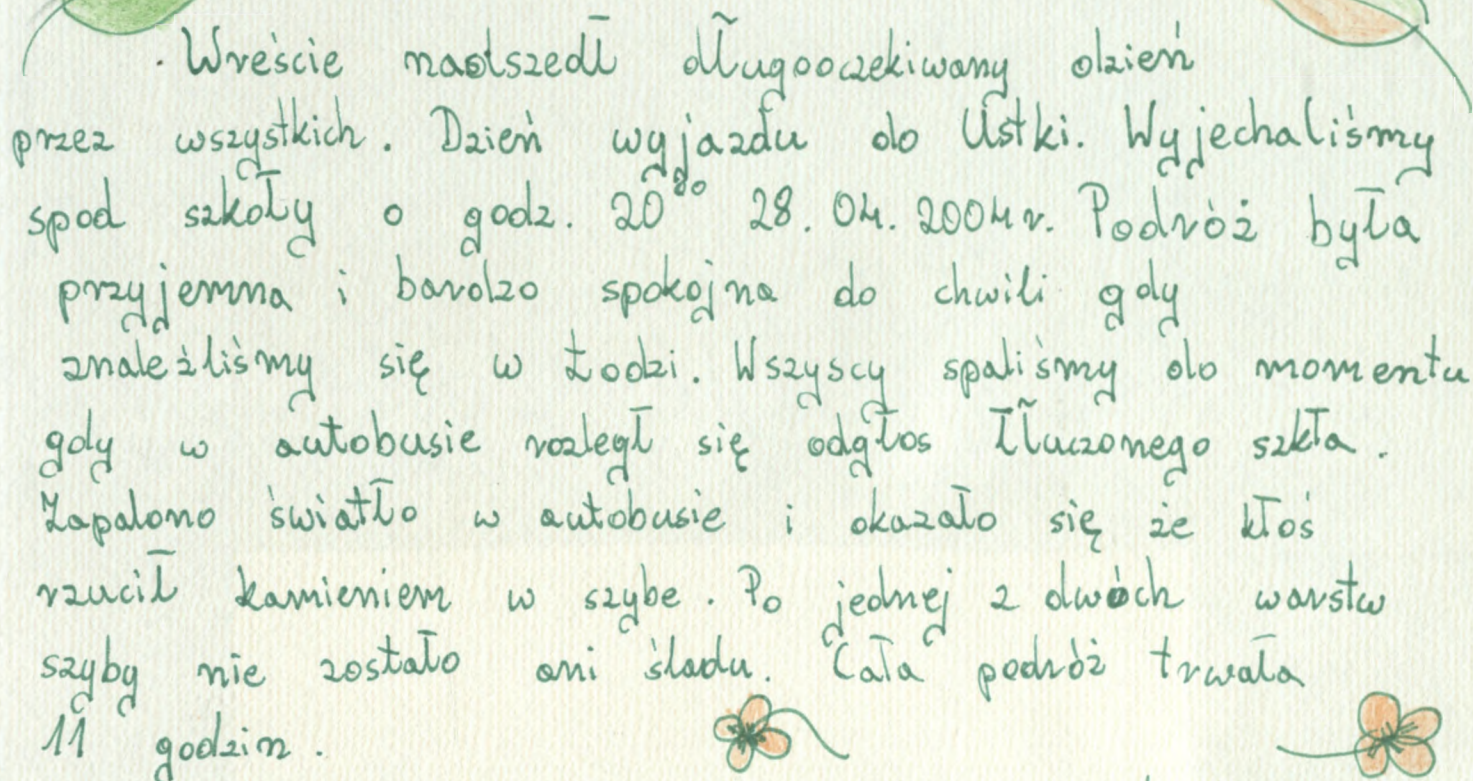 Wreście nadszedł długooczekiwany dzień
przez wszystkich. Dzień wyjazdu do Ustki. Wyjechaliśmy
spod szkoły o godz. 20³⁰ 28.04.2004r. Podróż była
przyjemna i bardzo spokojna do chwili gdy
znaleźliśmy się w Łodzi. Wszyscy spaliśmy do momentu
gdy w autobusie rozległ się odgłos tłuczonego szkła.
Zapalono światło w autobusie i okazało się że ktoś
rzucił kamieniem w szybe. Po jednej z dwóch warstw
szyby nie zostało ani śladu. Cała podróż trwała
11 godzin.